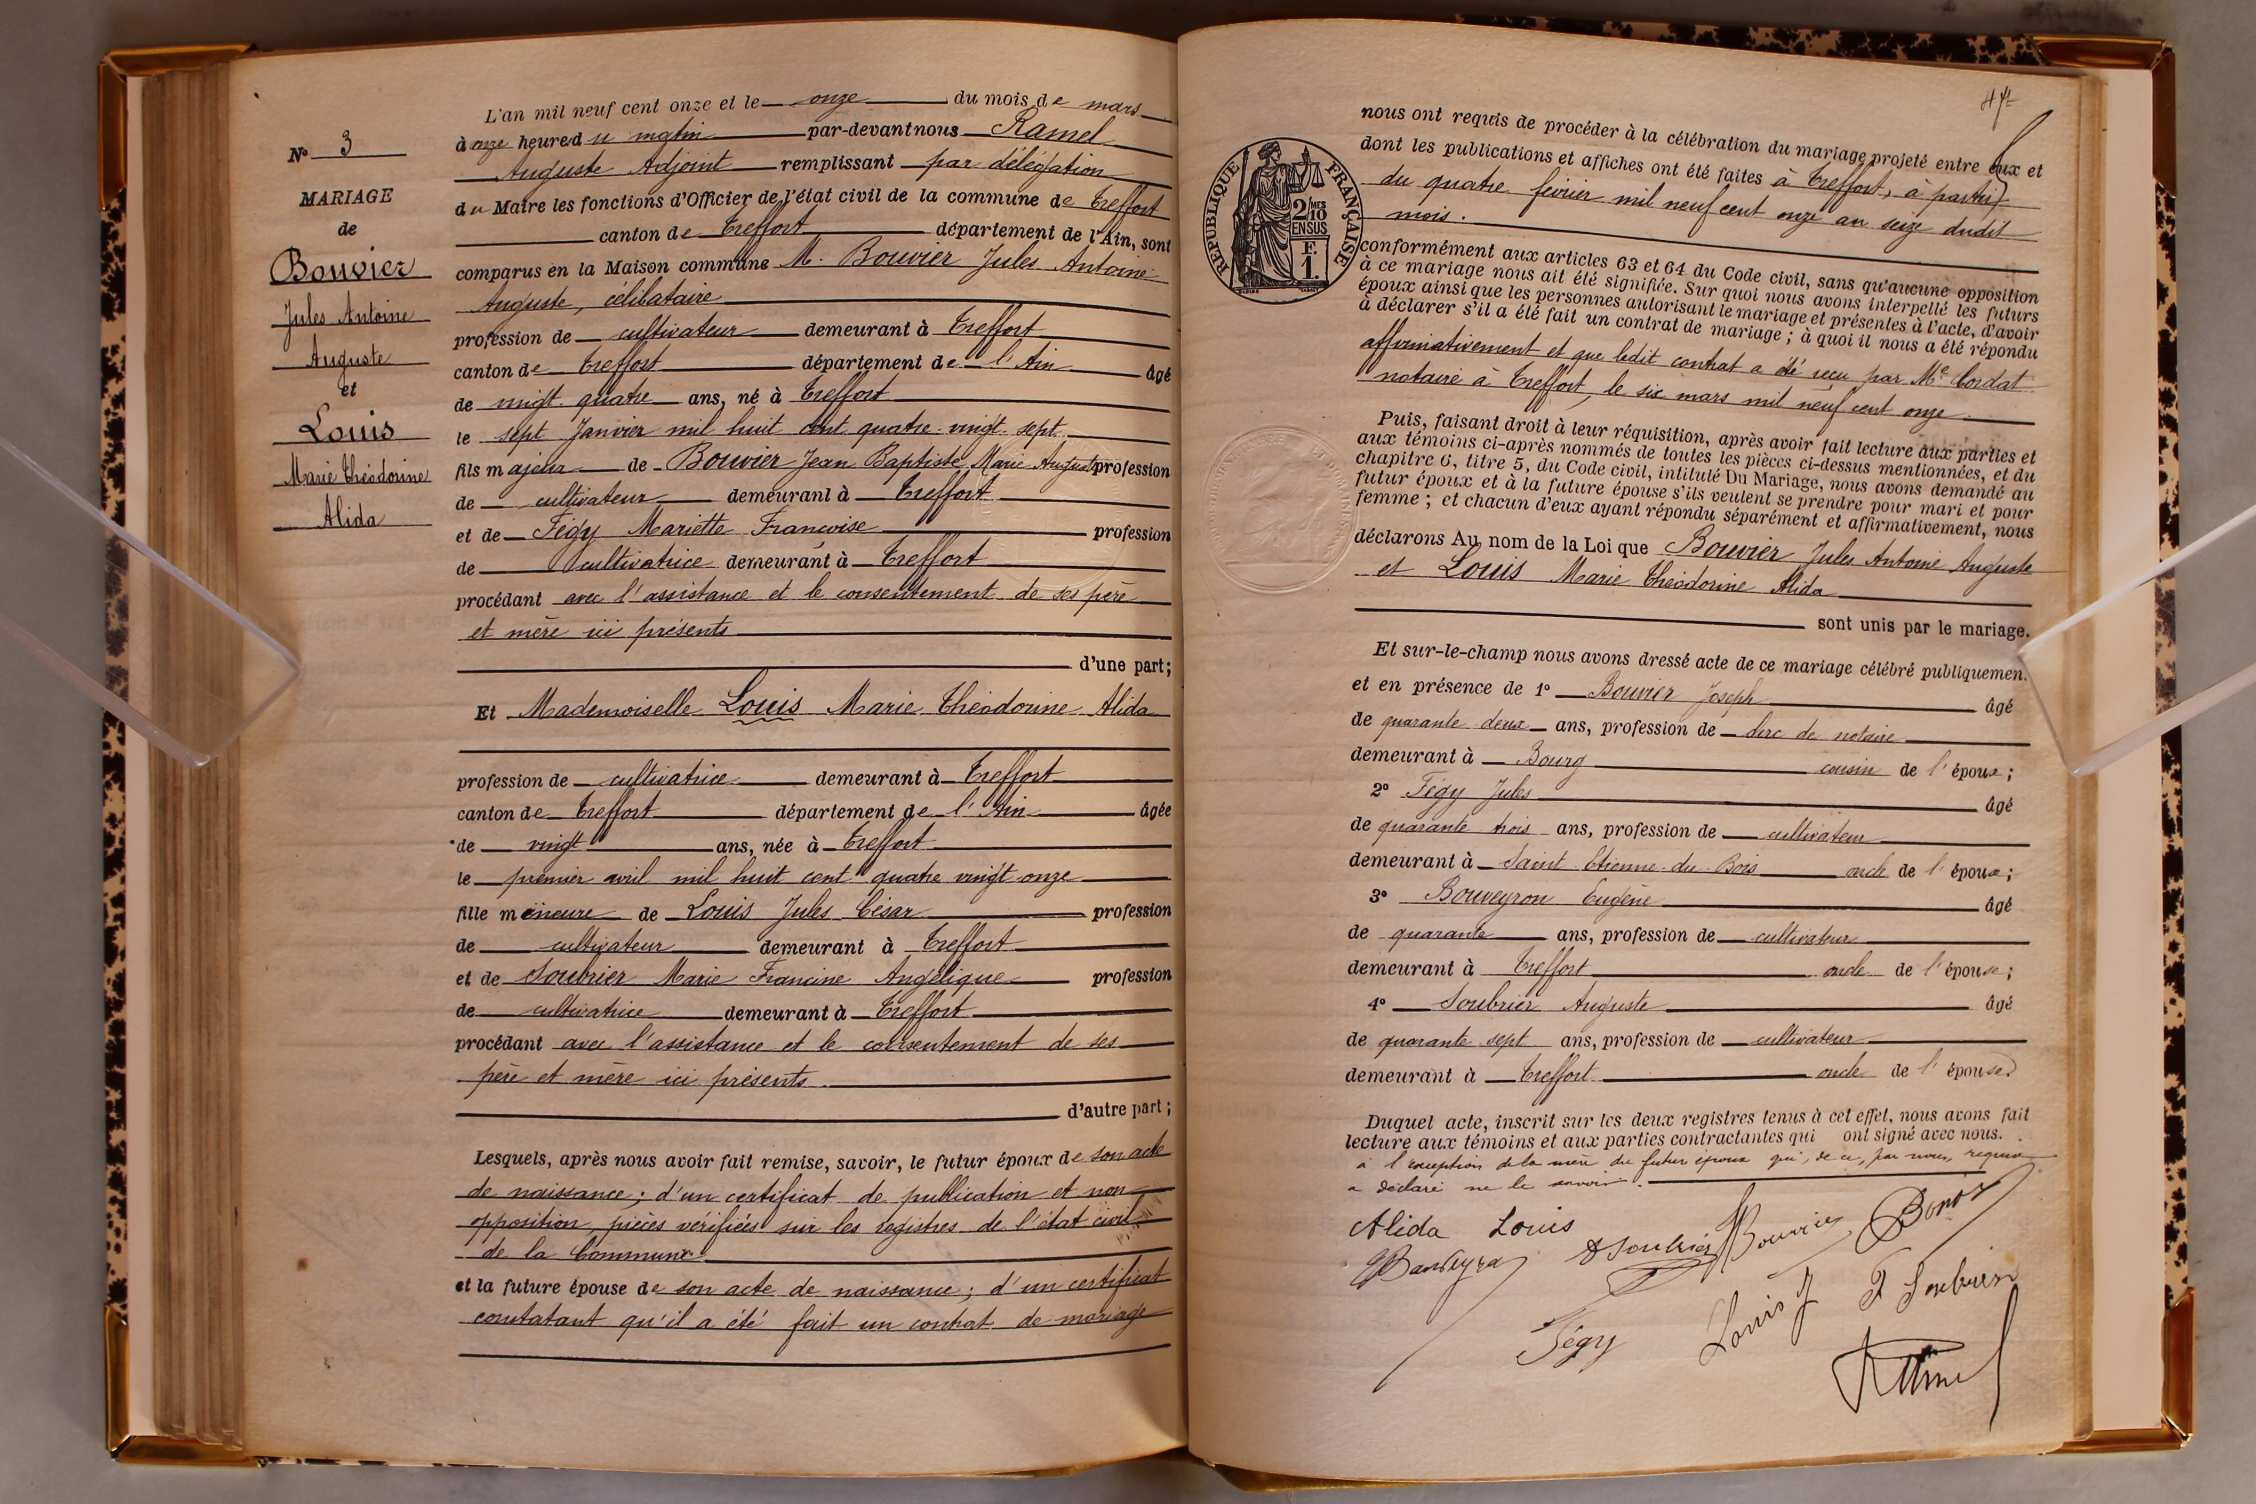 N° 3
MARIAGE
de
Bouvier
Jules Antoine
Auguste
et
Louis
Marie Théodorine
Alida
L'an mil neuf cent onze et le onze du mois de mars
à onze heures du matin par-devant nous Ramel
Auguste Adjoint remplissant par délégation
du Maire les fonctions d'Officier de l'état civil de la commune de Treffort
canton de Treffort département de l'Ain, sont
comparus en la Maison commune M. Bouvier Jules Antoine
Auguste, célibataire
profession de cultivateur demeurant à Treffort
canton de Treffort département de l'Ain âgé
de vingt quatre ans, né à Treffort
le sept Janvier mil huit cent quatre-vingt-sept
fils majeur de Bouvier Jean Baptiste Marie Auguste profession
de cultivateur demeurant à Treffort
et de Fégy Mariette Françoise profession
de cultivatrice demeurant à Treffort
procédant avec l'assistance et le consentement de ses père
et mère ici présents
d'une part;
Et Mademoiselle Louis Marie Théodorine Alida
profession de cultivatrice demeurant à Treffort
canton de Treffort département de l'Ain âgée
de vingt ans, née à Treffort
le premier avril mil huit cent quatre vingt onze
fille mineure de Louis Jules César profession
de cultivateur demeurant à Treffort
et de Soubrier Marie Francine Angélique profession
de cultivatrice demeurant à Treffort
procédant avec l'assistance et le consentement de ses
père et mère ici présents
d'autre part;
Lesquels, après nous avoir fait remise, savoir, le futur époux de son acte
de naissance; d'un certificat de publication et non
opposition, pièces vérifiées sur les registres de l'état civil
de la Commune
et la future épouse de son acte de naissance; d'un certificat
constatant qu'il a été fait un contrat de mariage
47
RÉPUBLIQUE FRANÇAISE
2/10 MES
EN SUS
F.
1.
nous ont requis de procéder à la célébration du mariage projeté entre eux et
dont les publications et affiches ont été faites à Treffort, à partir
du quatre février mil neuf cent onze au seize dudit
mois.
conformément aux articles 63 et 64 du Code civil, sans qu'aucune opposition
à ce mariage nous ait été signifiée. Sur quoi nous avons interpellé les futurs
époux ainsi que les personnes autorisant le mariage et présentes à l'acte, d'avoir
à déclarer s'il a été fait un contrat de mariage; à quoi il nous a été répondu
affirmativement et que ledit contrat a été reçu par Me Cordat
notaire à Treffort, le six mars mil neuf cent onze
Puis, faisant droit à leur réquisition, après avoir fait lecture aux parties et
aux témoins ci-après nommés de toutes les pièces ci-dessus mentionnées, et du
chapitre 6, titre 5, du Code civil, intitulé Du Mariage, nous avons demandé au
futur époux et à la future épouse s'ils veulent se prendre pour mari et pour
femme; et chacun d'eux ayant répondu séparément et affirmativement, nous
déclarons Au nom de la Loi que Bouvier Jules Antoine Auguste
et Louis Marie Théodorine Alida
sont unis par le mariage.
Et sur-le-champ nous avons dressé acte de ce mariage célébré publiquemen
et en présence de 1° Bouvier Joseph âgé
de quarante-deux ans, profession de clerc de notaire
demeurant à Bourg cousin de l'époux;
2° Fégy Jules âgé
de quarante trois ans, profession de cultivateur
demeurant à Saint-Etienne-du-Bois oncle de l'époux;
3° Bouveyron Eugène âgé
de quarante ans, profession de cultivateur
demeurant à Treffort oncle de l'épouse;
4° Soubrier Auguste âgé
de quarante sept ans, profession de cultivateur
demeurant à Treffort oncle de l'épouse
Duquel acte, inscrit sur les deux registres tenus à cet effet, nous avons fait
lecture aux témoins et aux parties contractantes qui ont signé avec nous.
à l'exception de la mère du futur époux qui, de ce, par nous, requise
a déclaré ne le savoir.
Alida Louis
A Soubrier Bouvier
Louis J F Soubrier
Fégy
Ramel